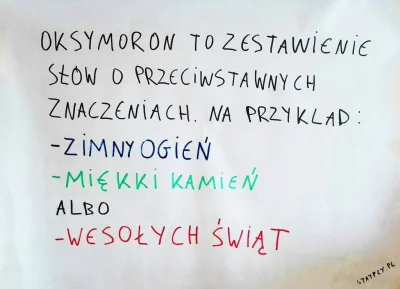 OKSYMORON TO ZESTAWIENIE
SŁÓW O PRZECIWSTAWNYCH
ZNACZENIACH. NA PRZYKLAD:
-ZIMNY OGIEŃ
-MIĘKKI KAMIEŃ
ALBO
-WESOŁYCH ŚWIĄT
STAYFLY.PL